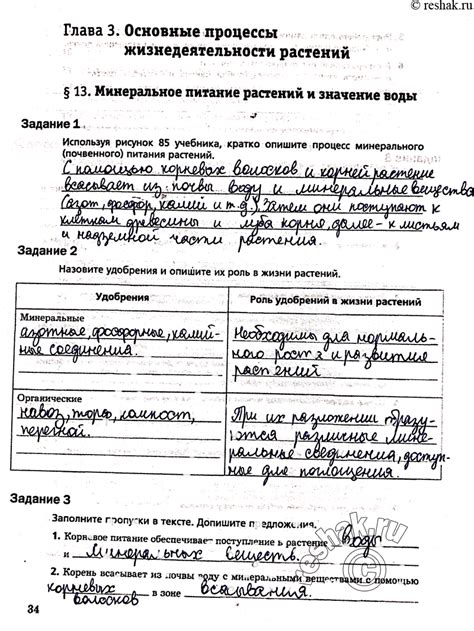 © reshak.ru
Глава 3. Основные процессы
жизнедеятельности растений
§ 13. Минеральное питание растений и значение воды
Задание 1
Используя рисунок 85 учебника, кратко опишите процесс минерального
(почвенного) питания растений.
С помощью корневых волосков и корней растение
всасывает из почвы воду и минеральные вещества
(азот, фосфор, калий и т.д.) Затем они поступают к
клеткам древесины и луба корня, далее - к листьям
и надземной части растения.
Задание 2
Назовите удобрения и опишите их роль в жизни растений.
Удобрения Роль удобрений в жизни растений
Минеральные
азотные, фосфорные, калий-
ные соединения.
Необходимы для нормаль-
ного роста и развития
растений
Органические
навоз, торф, компост,
перегной.
При их разложении образу-
ются различные мине-
ральные соединения, доступ-
ные для поглощения.
Задание 3
Заполните пропуски в тексте. Допишите предложения.
1. Корневое питание обеспечивает поступление в растение воды
и минеральных веществ.
2. Корень всасывает из почвы воду с минеральными веществами с помощью
корневых волосков в зоне всасывания.
reshak.ru
34